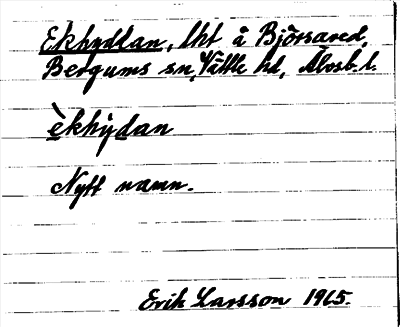 Ekhydlan, lht å Björsared,
Bergums sn, Vättle hd, Älvsb. l.
èkhỳdan
Nytt namn.
Erik Larsson 1965.